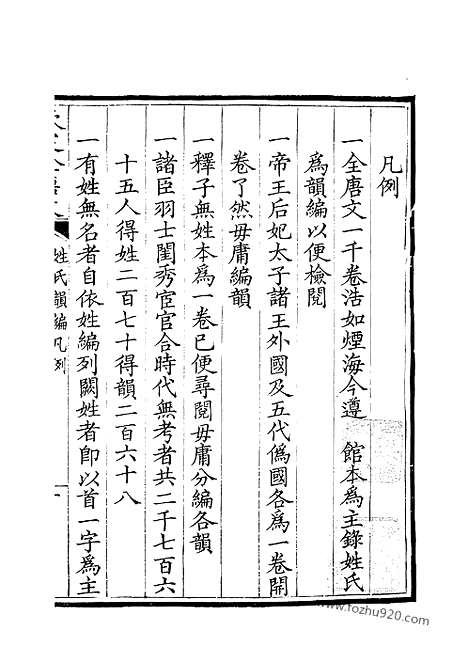 凡例
一全唐文一千卷浩如煙海今遵 館本爲主錄姓氏
爲韻編以便檢閱
一帝王后妃太子諸王外國及五代僞國各爲一卷開
卷了然毋庸編韻
一釋子無姓本爲一卷已便尋閱毋庸分編各韻
一諸臣羽士閨秀宦官合時代無考者共二千七百六
十五人得姓二百七十得韻二百六十八
一有姓無名者自依姓編列闕姓者卽以首一字爲主
姓氏韻編凡例
一
www.fozhu920.com